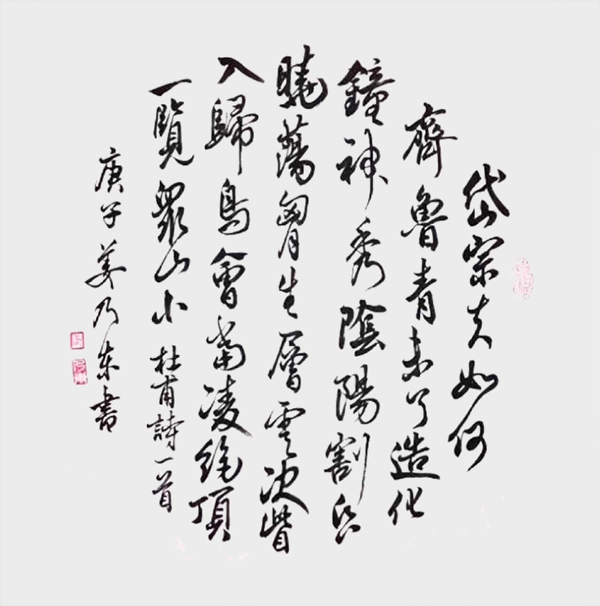 岱宗夫如何
齊魯青未了造化
鐘神秀陰陽割昏
曉蕩胷生層雲決眥
入歸鳥會當凌絕頂
一覽眾山小 杜甫詩一首
庚子姜乃東書